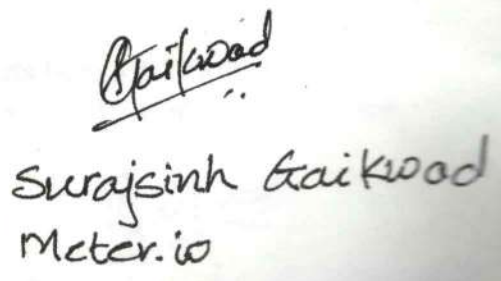 Gaikwad
Surajsinh Gaikwad
Meter.io